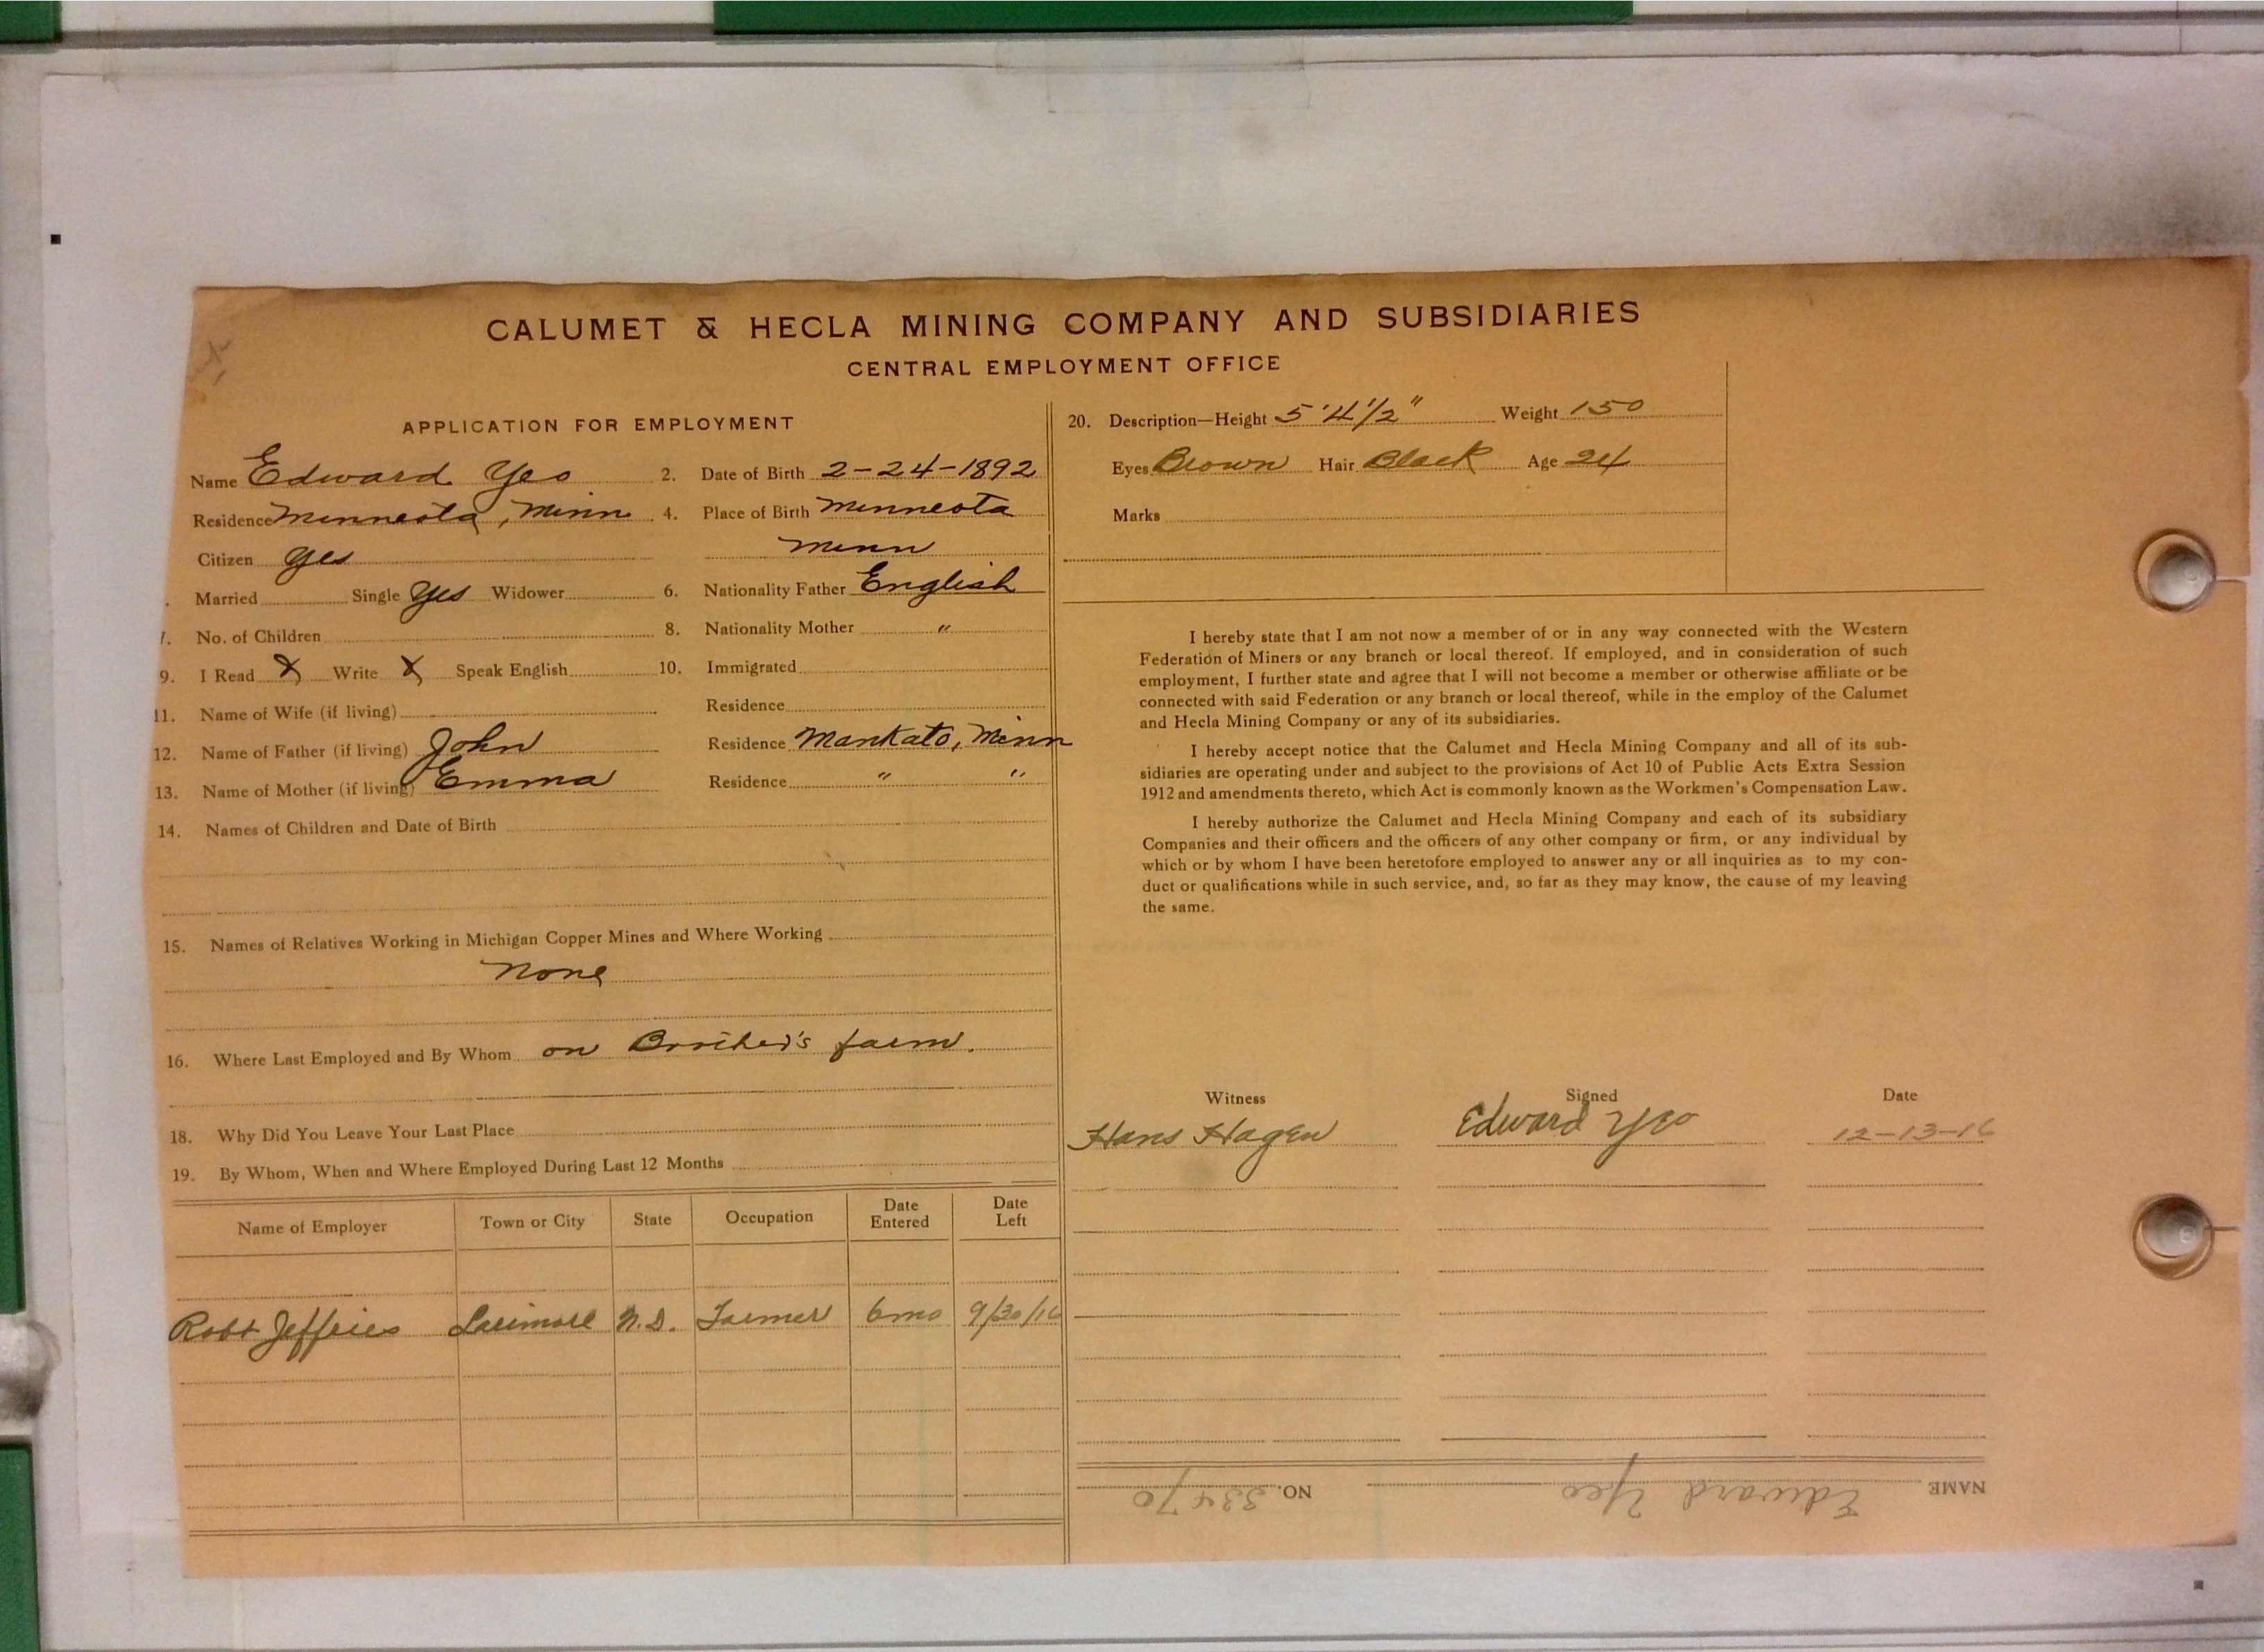 CALUMET & HECLA MINING COMPANY AND SUBSIDIARIES
CENTRAL EMPLOYMENT OFFICE
APPLICATION FOR EMPLOYMENT
Name Edward Yeo 2. Date of Birth 2-24-1892
Residence Minneota, Minn 4. Place of Birth Minneota
Citizen yes Minn
Married Single yes Widower 6. Nationality Father English
7. No. of Children 8. Nationality Mother "
9. I Read X Write X Speak English 10. Immigrated
11. Name of Wife (if living) Residence
12. Name of Father (if living) John Residence Mankato, Minn
13. Name of Mother (if living) Emma Residence " "
14. Names of Children and Date of Birth
15. Names of Relatives Working in Michigan Copper Mines and Where Working
None
16. Where Last Employed and By Whom on Brother's farm.
18. Why Did You Leave Your Last Place
19. By Whom, When and Where Employed During Last 12 Months
Name of Employer Town or City State Occupation Date Entered Date Left
Robt Jeffries Larimore N.D. Farmer 6mo 9/30/16
20. Description—Height 5'4 1/2" Weight 150
Eyes Brown Hair Black Age 24
Marks
I hereby state that I am not now a member of or in any way connected with the Western
Federation of Miners or any branch or local thereof. If employed, and in consideration of such
employment, I further state and agree that I will not become a member or otherwise affiliate or be
connected with said Federation or any branch or local thereof, while in the employ of the Calumet
and Hecla Mining Company or any of its subsidiaries.
I hereby accept notice that the Calumet and Hecla Mining Company and all of its sub-
sidiaries are operating under and subject to the provisions of Act 10 of Public Acts Extra Session
1912 and amendments thereto, which Act is commonly known as the Workmen's Compensation Law.
I hereby authorize the Calumet and Hecla Mining Company and each of its subsidiary
Companies and their officers and the officers of any other company or firm, or any individual by
which or by whom I have been heretofore employed to answer any or all inquiries as to my con-
duct or qualifications while in such service, and, so far as they may know, the cause of my leaving
the same.
Witness Signed Date
Hans Hagen Edward Yeo 12-13-16
NAME Edward Yeo NO. 33470